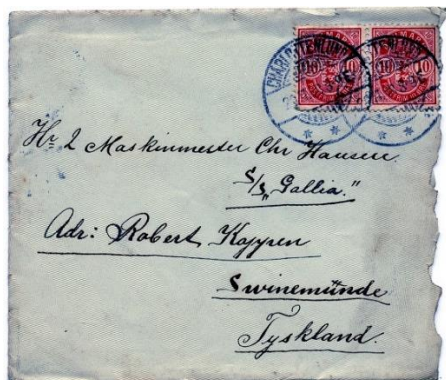 CHARLOTTENLUND
10 10
Hr 2 Maskinmester Chr Hansen
S/S „Gallia."
Adr: Robert Koppen
Swinemünde
Tyskland.